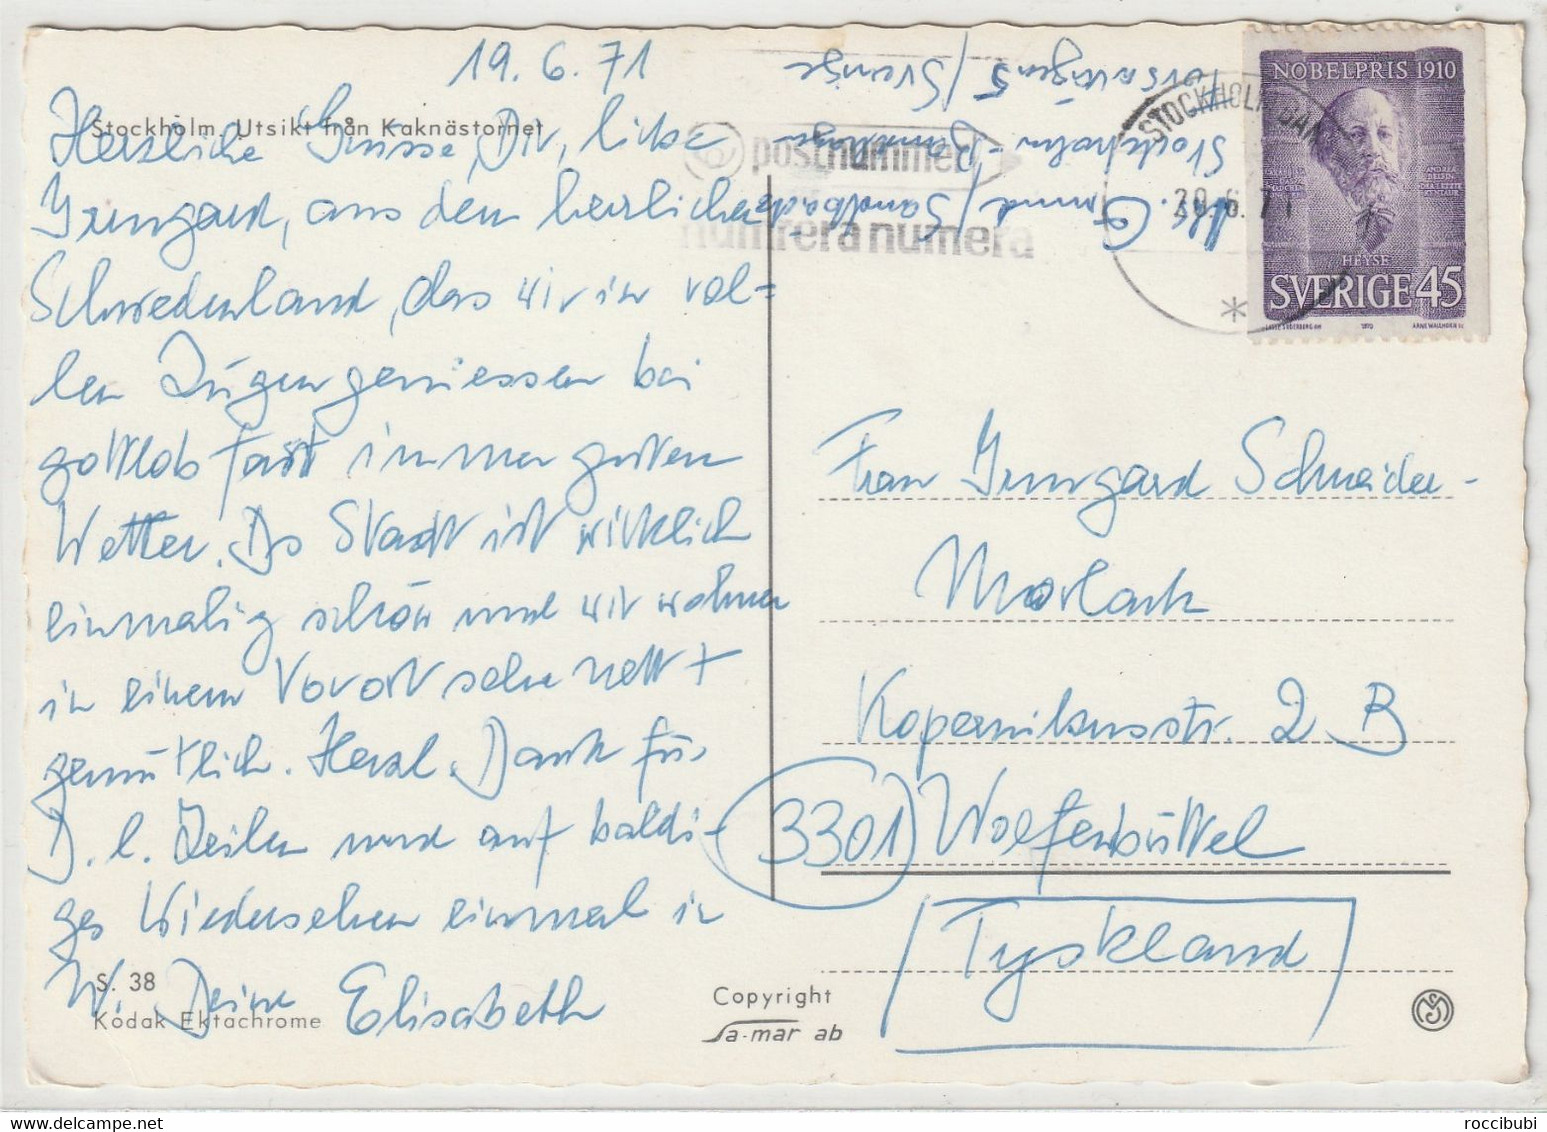 19. 6. 71
Stockholm. Utsikt från Kaknästornet
Herzliche Grüsse, Dir, liebe
Irmgard, aus dem herrlichen
Schwedenland, das wir in vol-
len Zügen geniessen bei
gottlob fast immer gutem
Wetter. Die Stadt ist wirklich
einmalig schön und wir wohnen
in einem Vorort sehr nett +
gemütlich. Herzl. Dank für
D. l. Zeilen und auf baldi-
ges Wiedersehen einmal in
W. Deine Elisabeth
S. 38
Kodak Ektachrome
Copyright
Sa-mar ab
Stockholm - / Sverige
postnummer
numrera numera
STOCKHOLM BAN
20. 6. 71
NOBELPRIS 1910
HEYSE
SVERIGE 45
1970
ARNE WALLHORN SC
Frau Irmgard Schneider-
Morlack
Kopernikusstr. 2 B
3301 Wolfenbüttel
Tyskland